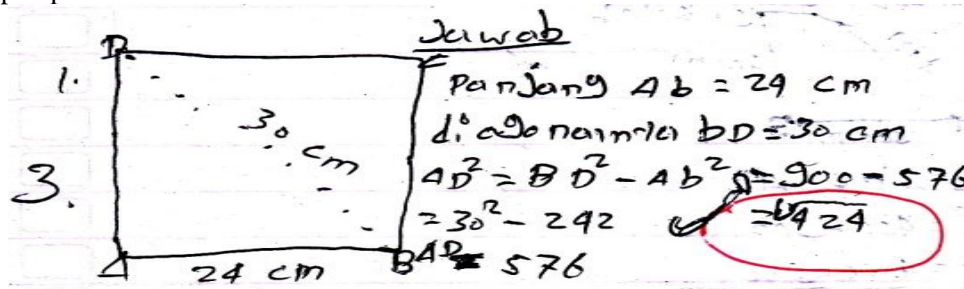 Jawab
1.
3.
D
C
30 cm
A
24 cm
B
Panjang Ab = 24 cm
diagonalnya bD = 30 cm
AD² = BD² - Ab² = 900 - 576
= 30² - 242 = √424
AD = 576